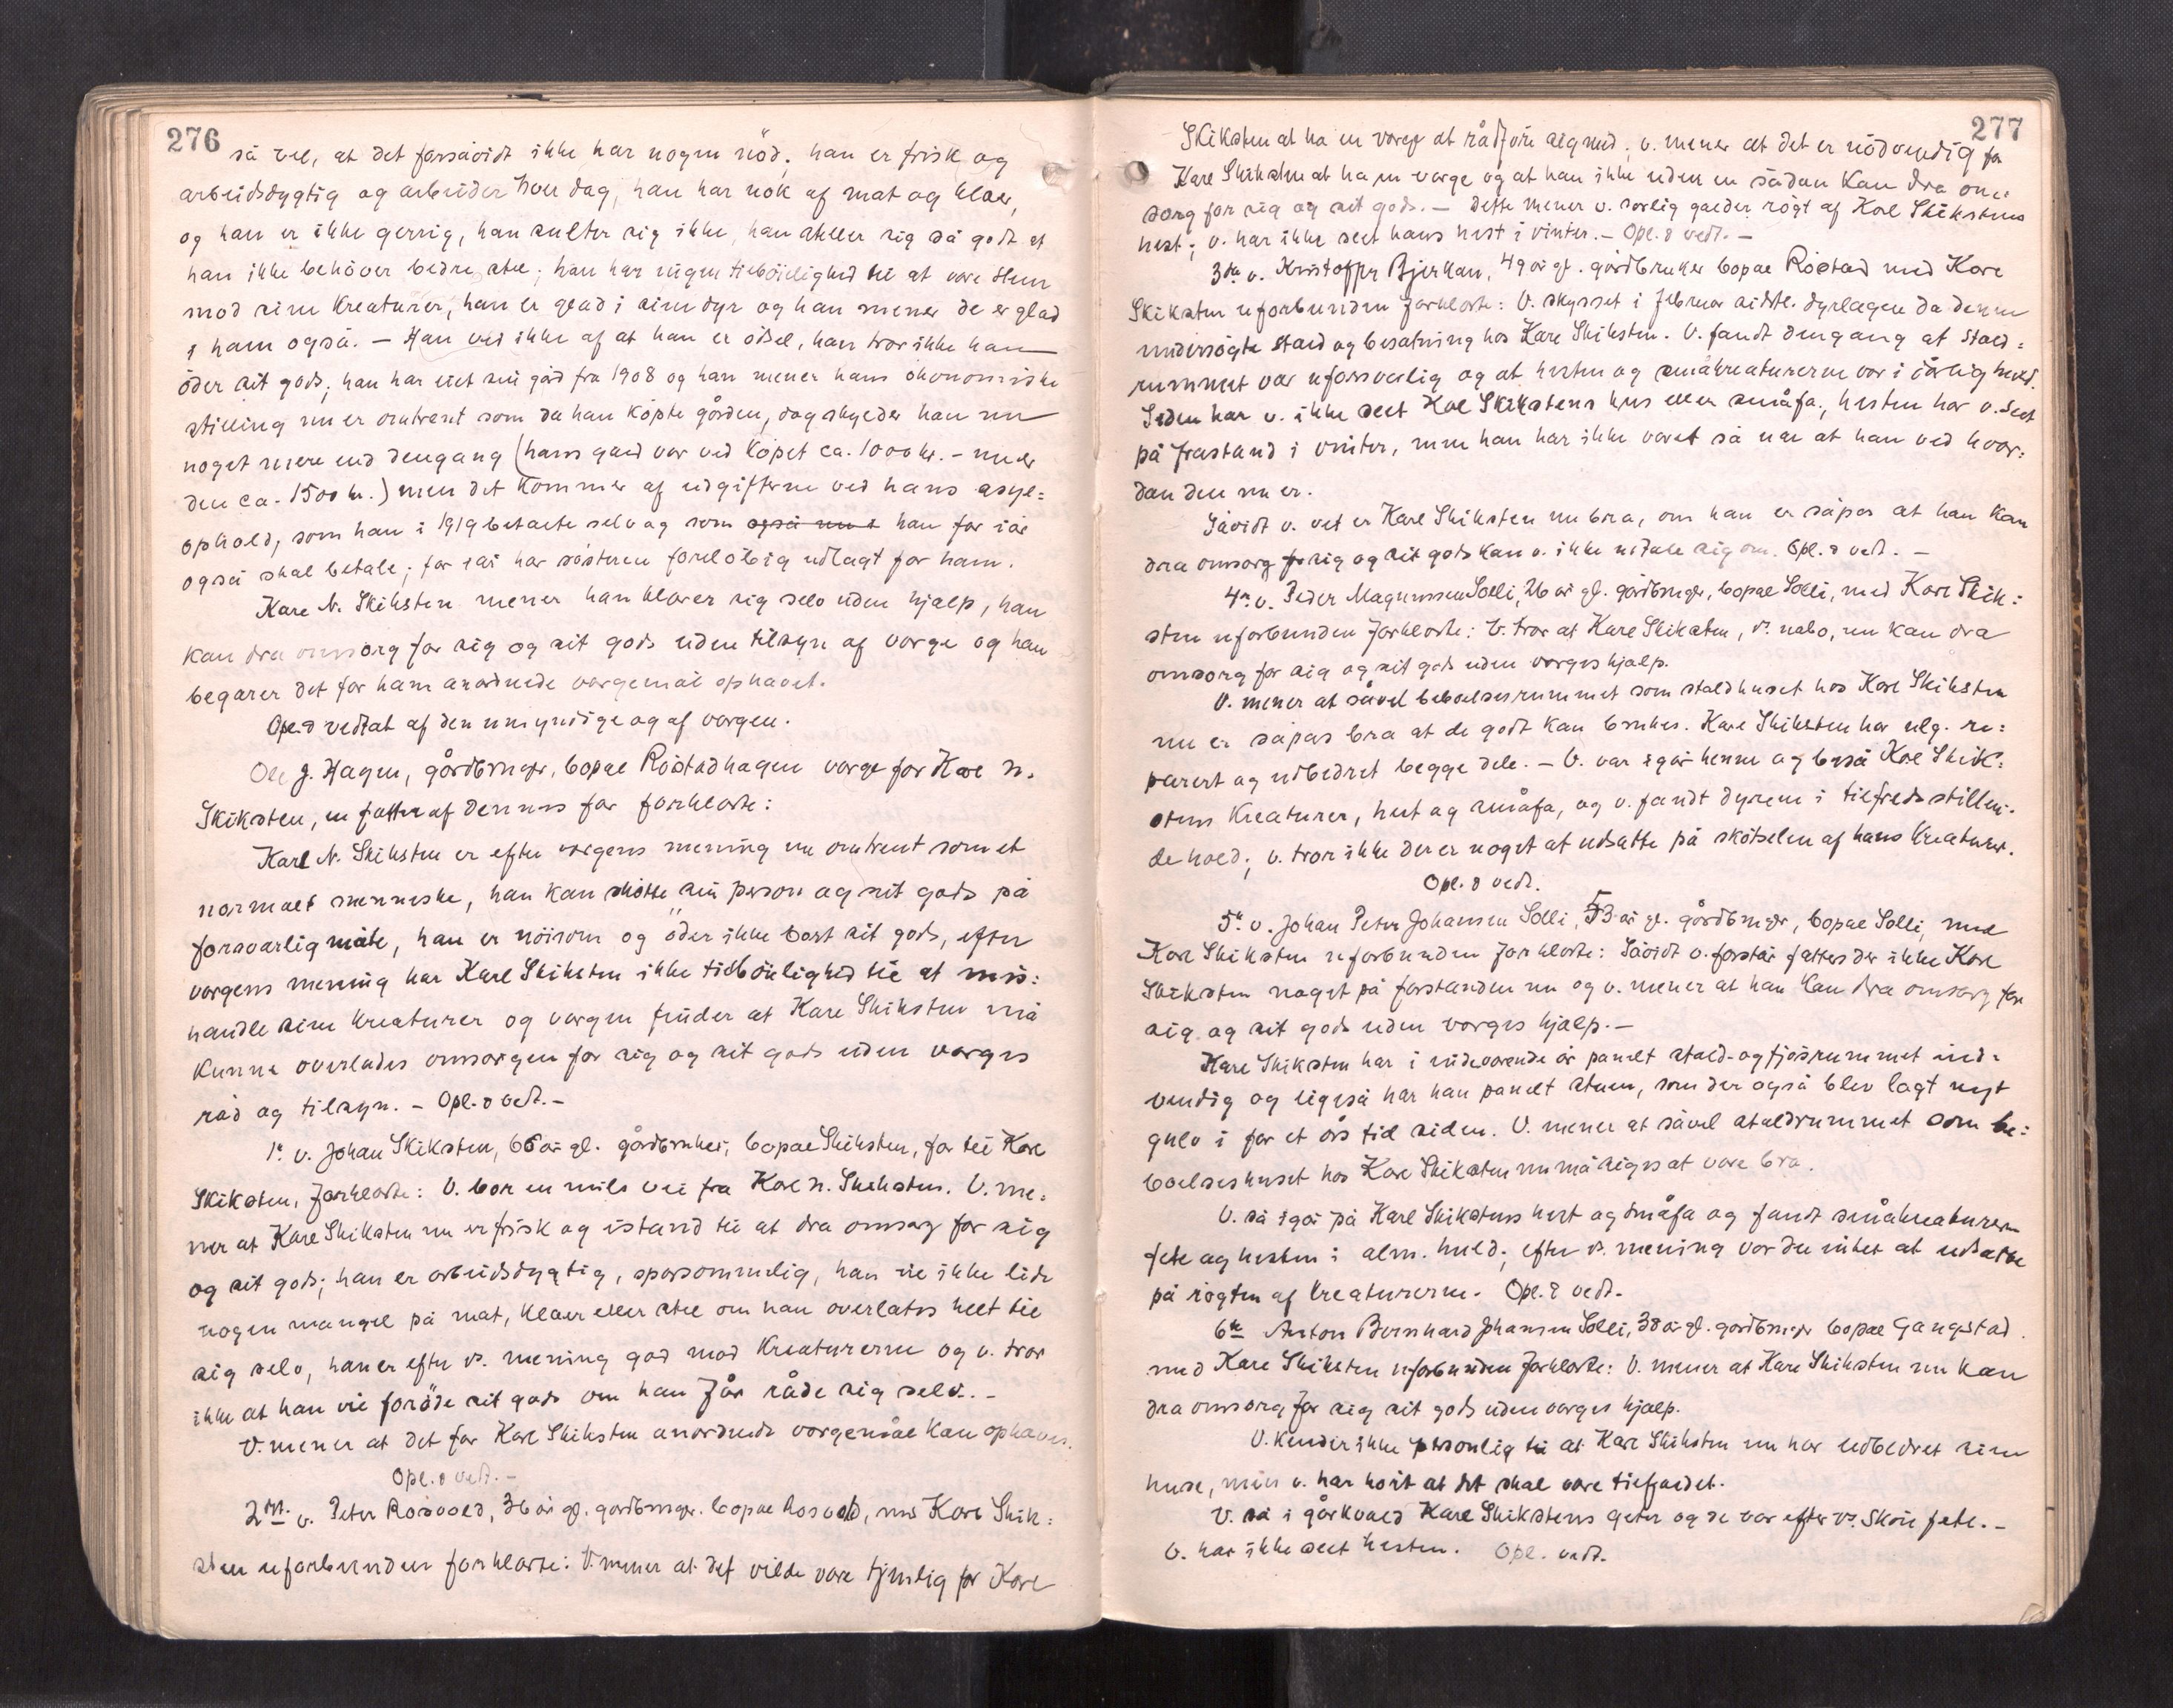 276
så vel, at det forsåvidt ikke har nogen nöd; han er frisk og
arbeidsdygtig og arbeider hver dag, han har nok af mat og klær,
og han er ikke gerrig, han sulter sig ikke, han steller sig så godt at
han ikke behöver bedre stel; han har ingen tilböielighed til at være slem
mod sine kreaturer, han er glad i sine dyr og han mener de er glad
i ham også. — Han ved ikke af at han er ödsel, han tror ikke han
öder sit gods; han har eiet sin gård fra 1908 og han mener hans ökonomiske
stilling nu er omtrent som da han köpte gården, dog skylder han nu
noget mere end dengang (hans gjæld var ved köpet ca. 1000 kr. - nu er
den ca. 1500 kr.) men det kommer af udgifterne ved hans asyl=
ophold, som han i 1919 betalte selv og som også han for iår
også skal betale; for iår har sösteren forelöbig udlagt for ham.
Karl N. Skiksten mener han klarer sig selv uden hjælp, han
kan dra omsorg for sig og sit gods uden tilsyn af værge og han
begjærer det for ham anordnede værgemål ophævet.
Opl. & vedtat af den umyndige og af værgen.
Ole J. Hagen, gårdbruger, bopæl Röstadhagen værge for Karl N.
Skiksten, en fætter af dennes far forklarte:
Karl N. Skiksten er efter værgens mening nu omtrent som et
normalt menneske, han kan skötte sin person og sit gods på
forsvarlig måte, han er nöisom og öder ikke bort sit gods, efter
værgens mening har Karl Skiksten ikke tilböielighed til at mis=
handle sine kreaturer og værgen finder at Karl Skiksten må
kunne overlades omsorgen for sig og sit gods uden værges
råd og tilsyn. — Opl. & vedt. —
1ste v. Johan Skiksten, 66 år gl. gårdbruker, bopæl Skiksten, far til Karl
Skiksten, forklarte: V. bor en mils vei fra Karl N. Skiksten. V. me=
ner at Karl Skiksten nu er frisk og istand til at dra omsorg for sig
og sit gods; han er arbeidsdygtig, sparsommelig, han vil ikke lide
nogen mangel på mat, klær eller stel om han overlates helt til
sig selv, han er efter v's. mening god mod kreaturerne og v. tror
ikke at han vil foröde sit gods om han får råde sig selv. —
V. mener at det for Karl Skiksten anordnede værgemål kan ophæves.
Opl. & vedt. —
2det v. Peter Rosvold, 36 år gl. gårdbruger bopæl Rosvold, med Karl Skik=
sten uforbunden forklarte: V. mener at det vilde være tjenlig for Karl
277
Skiksten at ha en værge at rådföre sig med; v. mener at det er nödvendig for
Karl Skiksten at ha en værge og at han ikke uden en sådan kan dra om=
sorg for sig og sit gods. — Dette mener v. særlig gjælder rögt af Karl Skikstens
hest; v. har ikke seet hans hest i vinter. — Opl. & vedt. —
3die v. Kristoffer Bjerkan, 49 år gl. gårdbruker bopæl Röstad med Karl
Skiksten uforbunden forklarte: V. skysset i februar sidstl. dyrlægen da denne
undersögte stald og besætning hos Karl Skiksten. V. fandt dengang at stald=
rummet var uforsvarlig og at hesten og småkreaturerne var i dårlig huld.
Siden har v. ikke seet Karl Skikstens hus eller småfæ, hesten har v. seet
på frastand i vinter, men han har ikke været så nær at han ved hvor=
dan den nu er.
Såvidt v. vet er Karl Skiksten nu bra, om han er såpas at han kan
dra omsorg for sig og sit gods kan v. ikke uttale sig om. Opl. & vedt. —
4de v. Peder Magnussen Solli, 26 år gl. gårdbruger, bopæl Solli, med Karl Skik=
sten uforbunden forklarte: V. tror at Karl Skiksten, v's. nabo, nu kan dra
omsorg for sig og sit gods uden værges hjælp.
V. mener at såvel beboelsesrummet som staldhuset hos Karl Skiksten
nu er såpas bra at de godt kan brukes. Karl Skiksten har selv re=
parert og udbedret begge dele. — V. var igår henne og beså Karl Skik=
stens kreaturer, hest og småfæ, og v. fandt dyrene i tilfredsstillen=
de hold; v. tror ikke der er noget at udsætte på skötselen af hans kreaturer.
Opl. & vedt.
5te v. Johan Peter Johansen Solli, 53 år gl. gårdbruger, bopæl Solli, med
Karl Skiksten uforbunden forklarte: Såvidt v. forstår fattes der ikke Karl
Skiksten noget på forstanden nu og v. mener at han kan dra omsorg for
sig og sit gods uden værges hjælp. —
Karl Skiksten har i indeværende år panelt stald- og fjösrummet ind=
vendig og ligeså har han panelt stuen, som der også blev lagt nyt
gulv i for et års tid siden. V. mener at såvel staldrummet som be=
boelseshuset hos Karl Skiksten nu må siges at være bra.
V. så igår på Karl Skikstens hest og småfæ og fandt småkreaturerne
fete og hesten i alm. huld; efter v's. mening var der intet at udsætte
på rögten af kreaturerne. Opl. & vedt.
6te Anton Bernhard Johansen Solli, 38 år gl. gårdbruger bopæl Gangstad
med Karl Skiksten uforbunden forklarte: V. mener at Karl Skiksten nu kan
dra omsorg for sig sit gods uden værges hjælp.
V. kender ikke personlig til at Karl Skiksten nu har udbedret sine
huse, men v. har hört at det skal være tilfældet.
V. så i går kvæld Karl Skikstens geter og de var efter v's. skön fete. —
V. har ikke seet hesten. Opl. vedt.